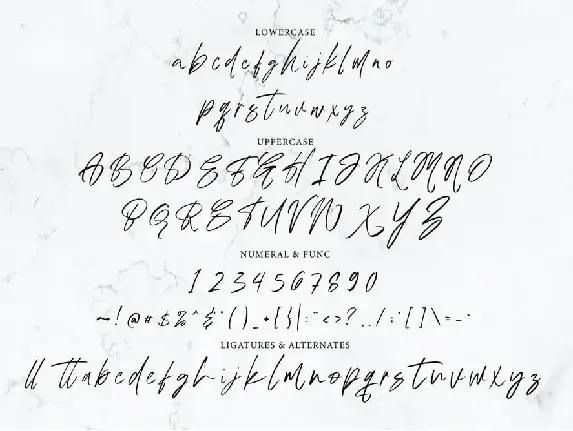 LOWERCASE
abcdefghijklmno
pqrstuvwxyz
UPPERCASE
ABCDEFGHIJKLMNO
PQRSTUVWXYZ
NUMERAL & PUNC
1234567890
~!@#$%^&*()_+{}|:"<>?.,/;'[]\=-`
LIGATURES & ALTERNATES
ll tt abcdefghijklmnopqrstuvwxyz